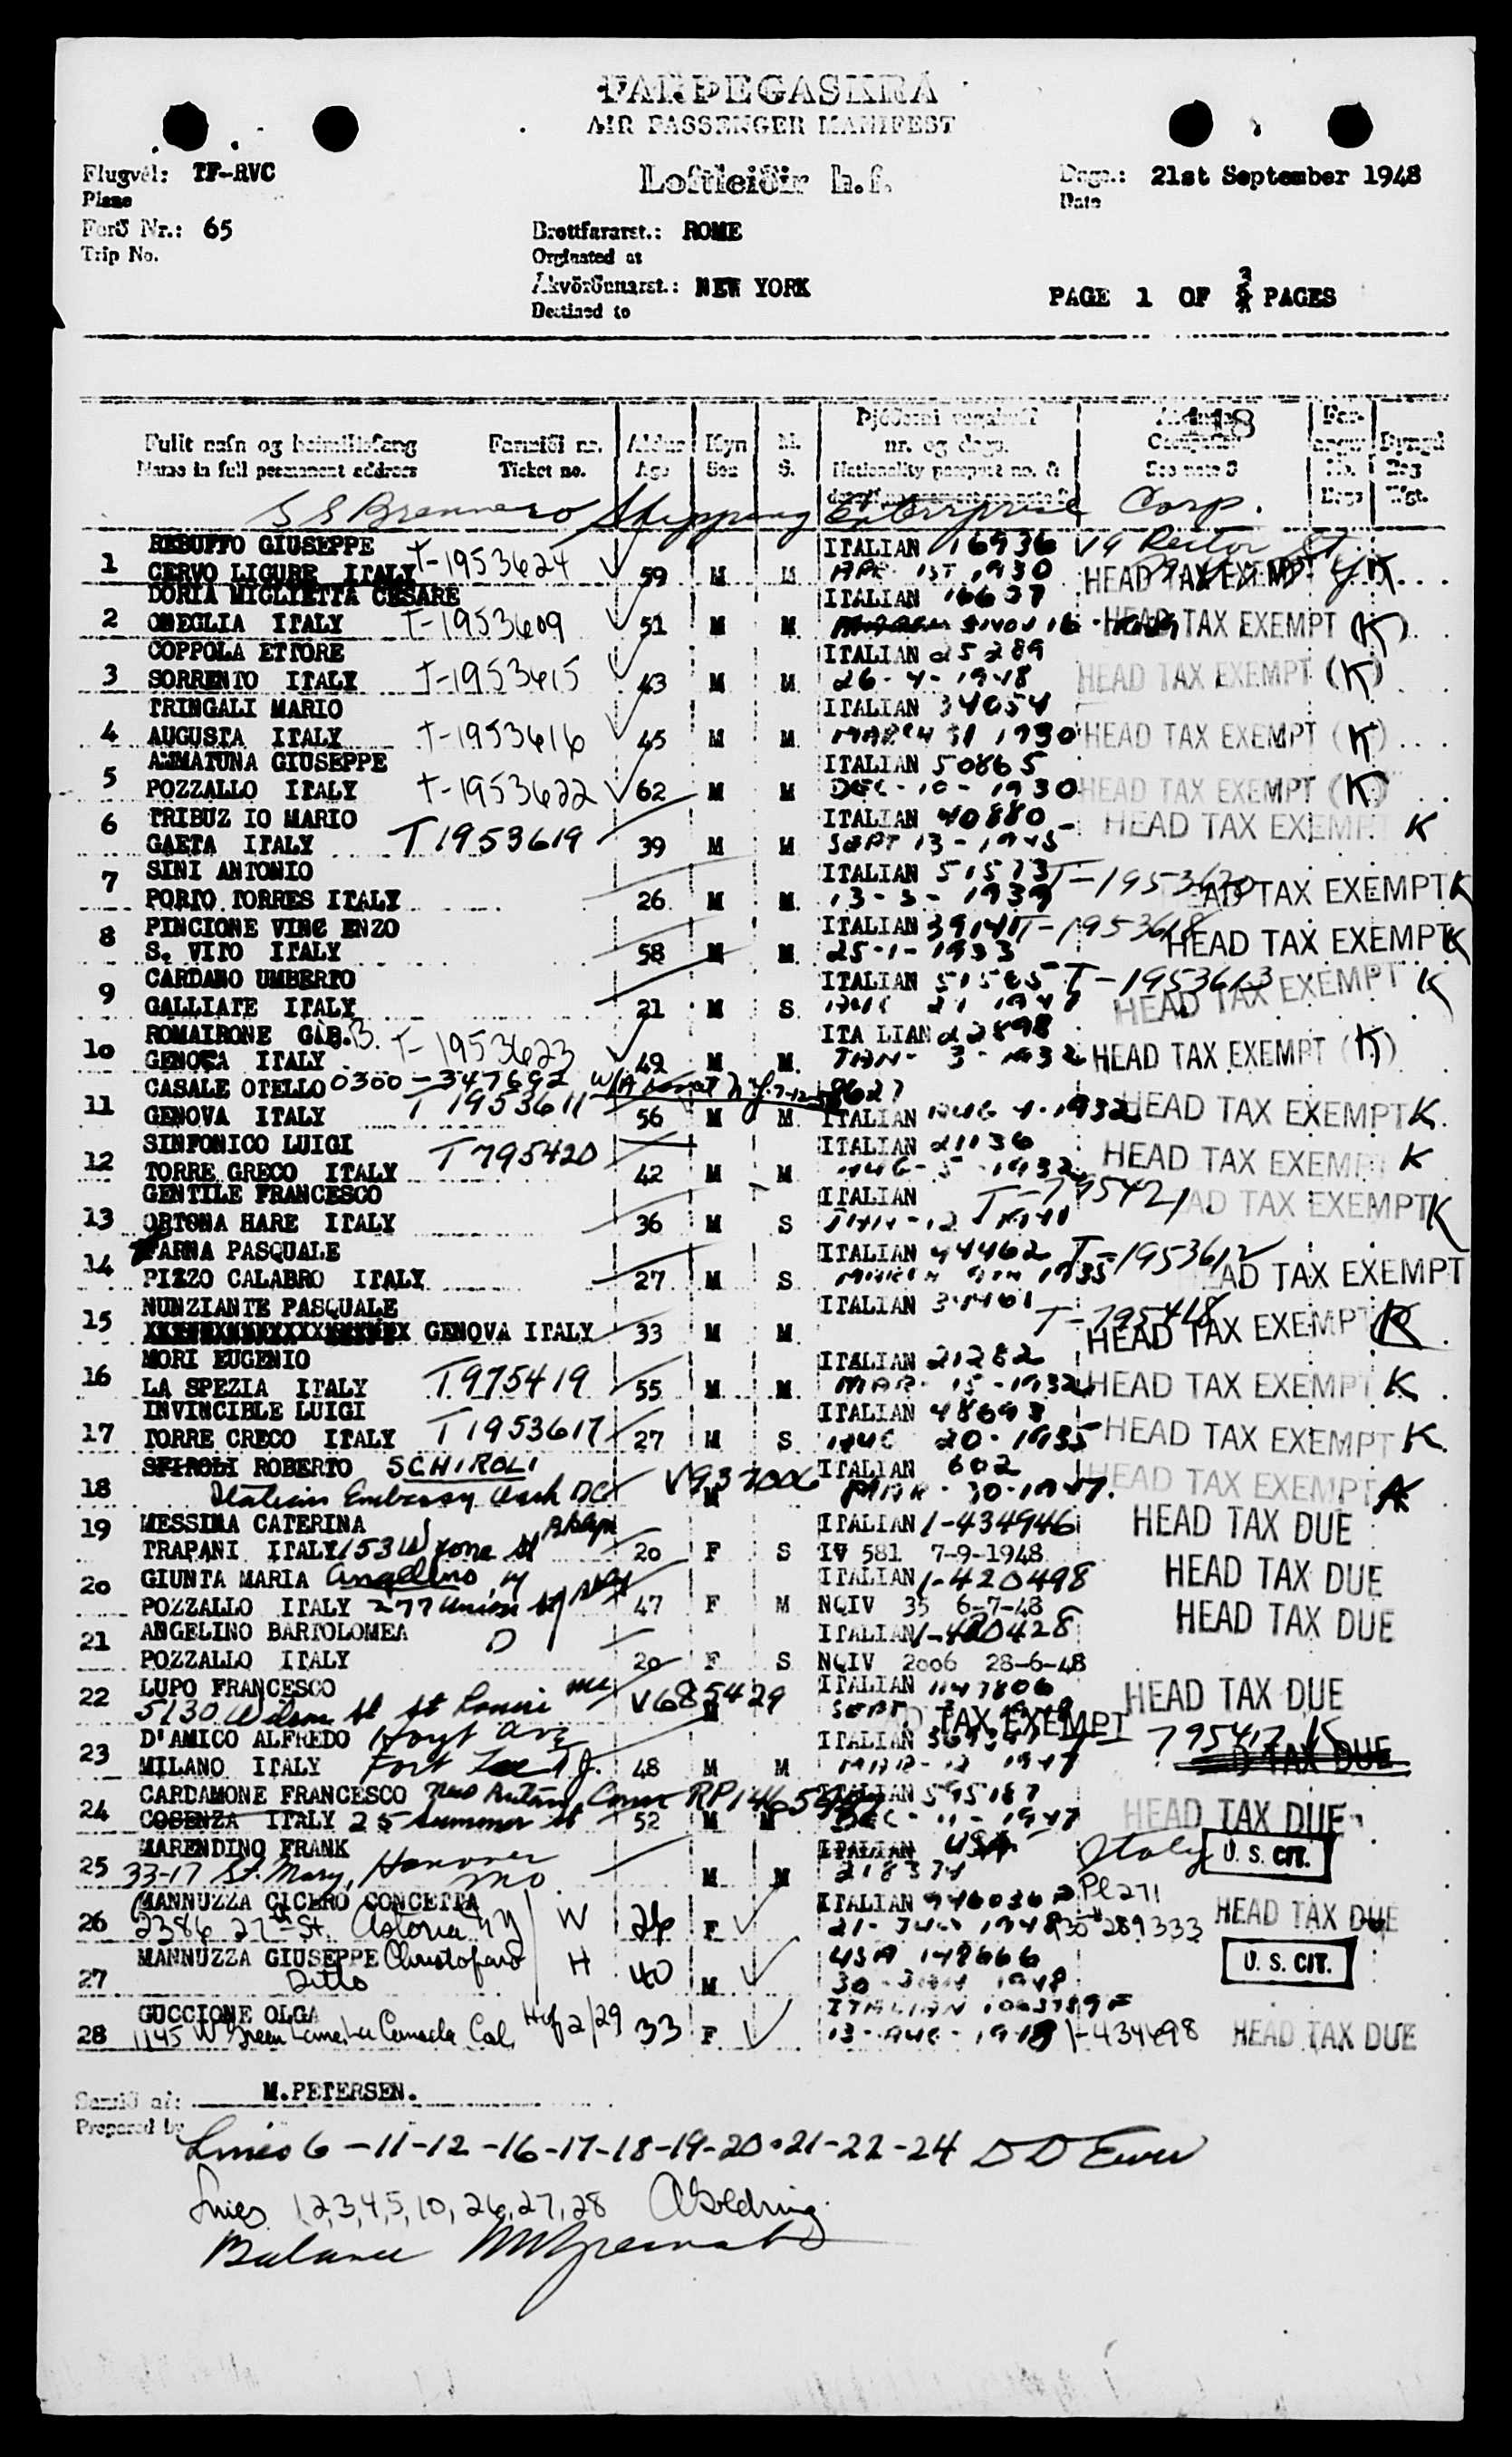 FARÞEGASKRÁ
AIR PASSENGER MANIFEST
Loftleiðir h.f.
Flugvél: TF-RVC
Plane
Dags.: 21st September 1948
Date
Ferð Nr.: 65
Trip No.
Brottfararst.: ROME
Orginated at
Ákvörðunarst.: NEW YORK
Destined to
PAGE 1 OF 3 PAGES
Fullt nafn og heimilisfang
Name in full permanent address
Farmiði nr.
Ticket no.
Aldur
Age
Kyn
Sex
M.
S.
Þjóðerni vegabréf
nr. og dags.
Nationality passport no. &
Occupation
See note
No.
Bags
Þyngd
Bag
Wgt.
SS Brennero Shipping Enterprise Corp.
REBUFFO GIUSEPPE ITALIAN 16936 19 Rector St
1 CERVO LIGURE ITALY T-1953624 59 M M APR 1ST 1930 HEAD TAX EXEMPT K
DORIA MIGLIETTA CESARE ITALIAN 16637
2 ONEGLIA ITALY T-1953609 51 M M HEAD TAX EXEMPT (K)
COPPOLA ETTORE ITALIAN 25289
3 SORRENTO ITALY T-1953615 43 M M 26-4-1948 HEAD TAX EXEMPT (K)
TRINGALI MARIO ITALIAN 34054
4 AUGUSTA ITALY T-1953616 45 M M MARCH 31 1930 HEAD TAX EXEMPT (K)
AMMATUNA GIUSEPPE ITALIAN 50865
5 POZZALLO ITALY T-1953622 62 M M DEC-10-1930 HEAD TAX EXEMPT (K)
TRIBUZ IO MARIO ITALIAN 40880
6 GAETA ITALY T1953619 39 M M SEPT 13-1945 HEAD TAX EXEMPT K
SINI ANTONIO ITALIAN 51573 T-1953620
7 PORTO TORRES ITALY 26 M M 13-3-1939 HEAD TAX EXEMPT K
PINCIONE VINC ENZO ITALIAN 39141 T-1953618
8 S. VITO ITALY 58 M M 25-1-1933 HEAD TAX EXEMPT K
CARDANO UMBERTO ITALIAN 51565 T-1953613
9 GALLIATE ITALY 21 M S HEAD TAX EXEMPT K
ROMAIRONE GIO.B. ITA LIAN 22898
10 GENOVA ITALY T-1953623 49 M M JAN-3-1932 HEAD TAX EXEMPT (K)
CASALE OTELLO 0300-347692
11 GENOVA ITALY T1953611 56 M M ITALIAN AUG 4-1932 HEAD TAX EXEMPT K
SINFONICO LUIGI ITALIAN 21136
12 TORRE GRECO ITALY T795420 42 M M AUG-5-1932 HEAD TAX EXEMPT K
GENTILE FRANCESCO ITALIAN T-795421
13 ORTONA MARE ITALY 36 M S HEAD TAX EXEMPT K
FARNA PASQUALE ITALIAN 44462 T-1953612
14 PIZZO CALABRO ITALY 27 M S MARCH 9TH 1935 HEAD TAX EXEMPT
NUNZIANTE PASQUALE ITALIAN 34461 T-795418
15 GENOVA ITALY 33 M M HEAD TAX EXEMPT K
MORI EUGENIO ITALIAN 21282
16 LA SPEZIA ITALY T975419 55 M M MAR-15-1932 HEAD TAX EXEMPT K
INVINCIBLE LUIGI ITALIAN 48693
17 TORRE CRECO ITALY T1953617 27 M S AUG 20-1935 HEAD TAX EXEMPT K
SPIROLI ROBERTO SCHIROLI ITALIAN 602
18 Italian Embassy Wash DC V937006 M MAR-30-1947 HEAD TAX EXEMPT K
19 MESSINA CATERINA ITALIAN 1-434946 HEAD TAX DUE
TRAPANI ITALY 153 Wyona St Bklyn 20 F S IV 581 7-9-1948
20 GIUNTA MARIA Angelino ITALIAN 1-420498 HEAD TAX DUE
POZZALLO ITALY 277 Union St Bklyn 47 F M NQIV 35 6-7-48
21 ANGELINO BARTOLOMEA ITALIAN 1-420428 HEAD TAX DUE
POZZALLO ITALY 20 F S NQIV 2006 28-6-48
22 LUPO FRANCESCO ITALIAN 1147806 HEAD TAX DUE
5130 Wilson St St Louis Mo V685429 M
D'AMICO ALFREDO Hoyt Ave ITALIAN TAX EXEMPT 795417 K
23 MILANO ITALY Fort Lee N.J. 48 M M MAR-12 1947 TAX DUE
CARDAMONE FRANCESCO New Britain, Conn ITALIAN 595187
24 COSENZA ITALY 25 Summer St 52 M M DEC-11-1947 HEAD TAX DUE
MARENDINO FRANK ITALIAN USA Italy U. S. CIT.
25 33-17 St. Mary, Hanover Mo M M 218374
MANNUZZA CICERO CONCETTA ITALIAN 946036 Pl 271
26 2386 27th St. Astoria NY W 26 F 289333 HEAD TAX DUE
MANNUZZA GIUSEPPE Christofaro H USA 148666 U. S. CIT.
27 Ditto 40 M 1948
GUCCIONE OLGA ITALIAN 1063789F
28 1145 W Green Lane La Canada Cal. 33 F 13-AUG-1948 1-434698 HEAD TAX DUE
Samið af: M.PETERSEN.
Prepared by
Lines 6-11-12-16-17-18-19-20-21-22-24 D D Ewer
Lines 1,2,3,4,5,10,26,27,28 A Goldring
Balance